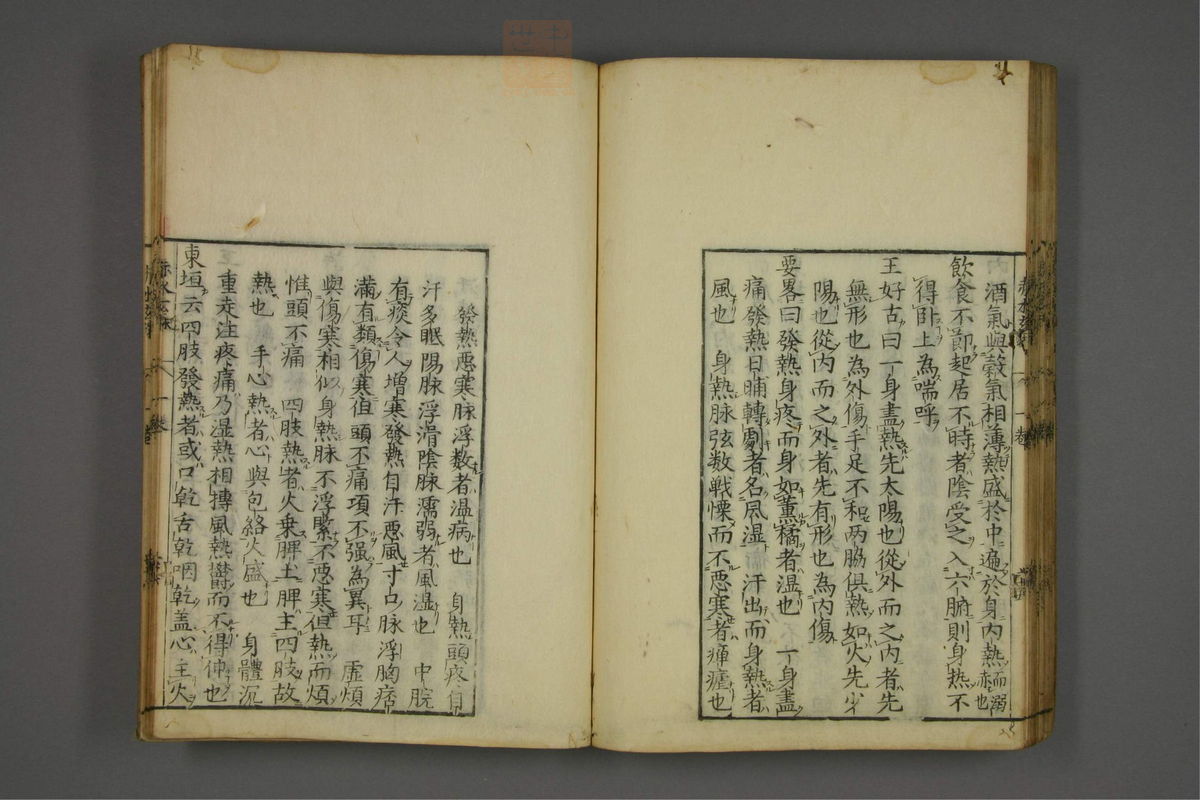 酒氣與穀氣相薄熱盛於中遍於身内熱而溺赤也
飲食不節起居不時者陰受之入六腑則身热不
得卧上為喘呼
王好古曰一身盡熱先太陽也從外而之内者先
無形也為外傷手足不和两脇俱熱如火先少
陽也從内而之外者先有形也為内傷
要畧曰發熱身疼而身如薰橘者湿也 一身盡
痛發熱日晡轉劇者名風湿 汗出而身熱者
風也 身熱脉弦数戦慄而不悪寒者瘅瘧也
發熱悪寒脉浮数者温病也 身熱頭疼自
汗多眠陽脉浮滑陰脉濡弱者風湿也 中脘
有痰令人增寒發熱自汗悪風寸口脉浮胸痞
滿有類傷寒但頭不痛項不强為異耳 虚煩
與傷寒相似身熱脉不浮緊不悪寒但熱而煩
惟頭不痛 四肢熱者火乗脾土脾主四肢故
熱也 手心熱者心與包絡火盛也 身體沉
重走注疼痛乃湿熱相搏風熱欝而不得伸也
東垣云四肢發熱者或口乾舌乾咽乾盖心主火